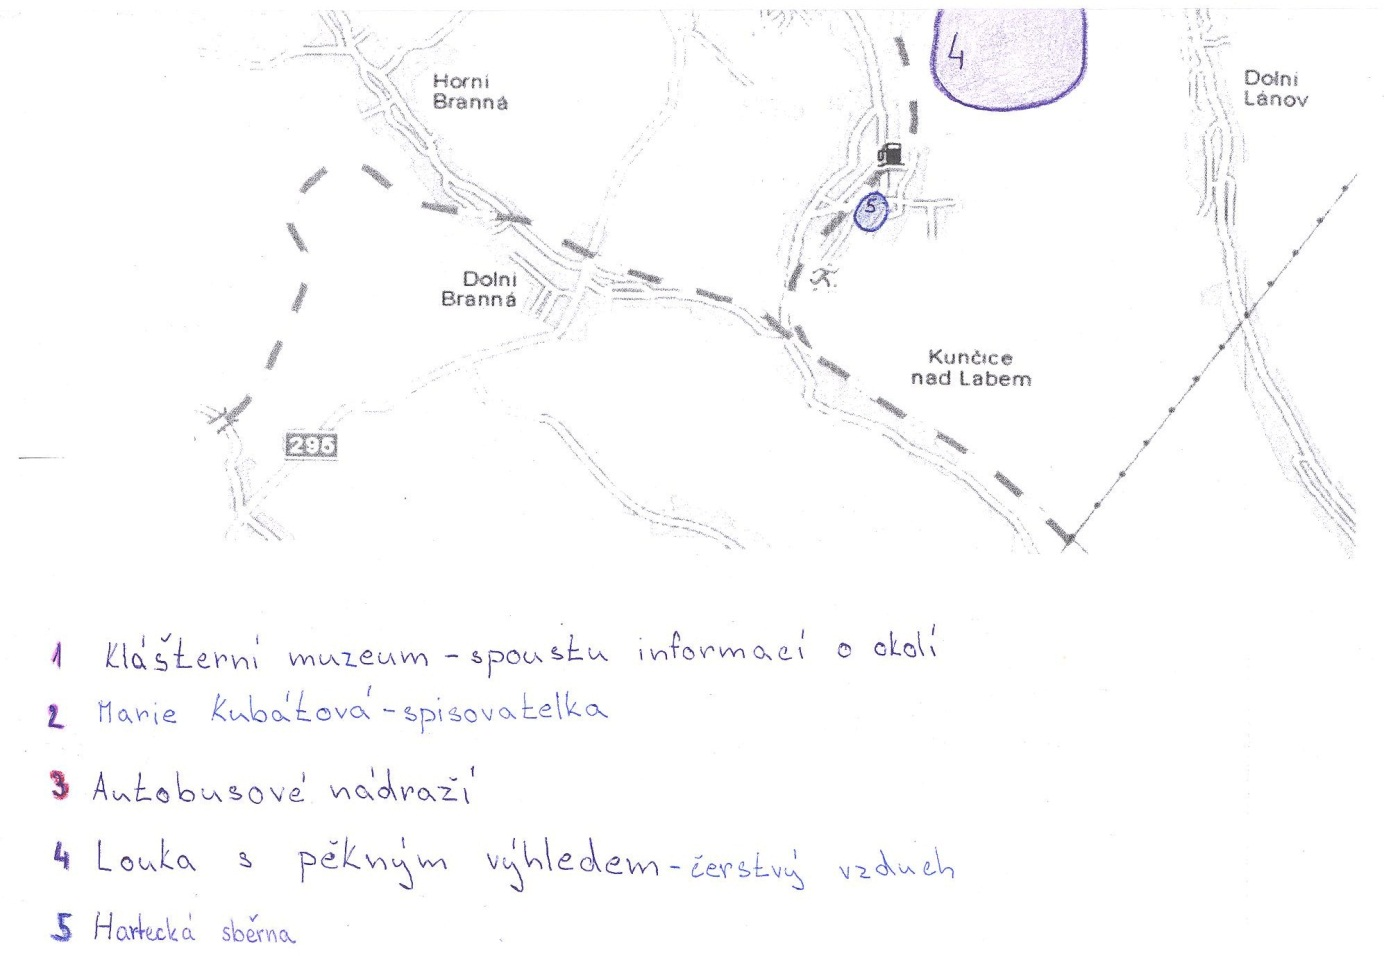 4
Horní
Branná
Dolní
Lánov
5
Dolní
Branná
Kunčice
nad Labem
295
1 Klášterní muzeum - spoustu informací o okolí
2 Marie Kubátová - spisovatelka
3 Autobusové nádraží
4 Louka s pěkným výhledem - čerstvý vzduch
5 Hartecká sběrna